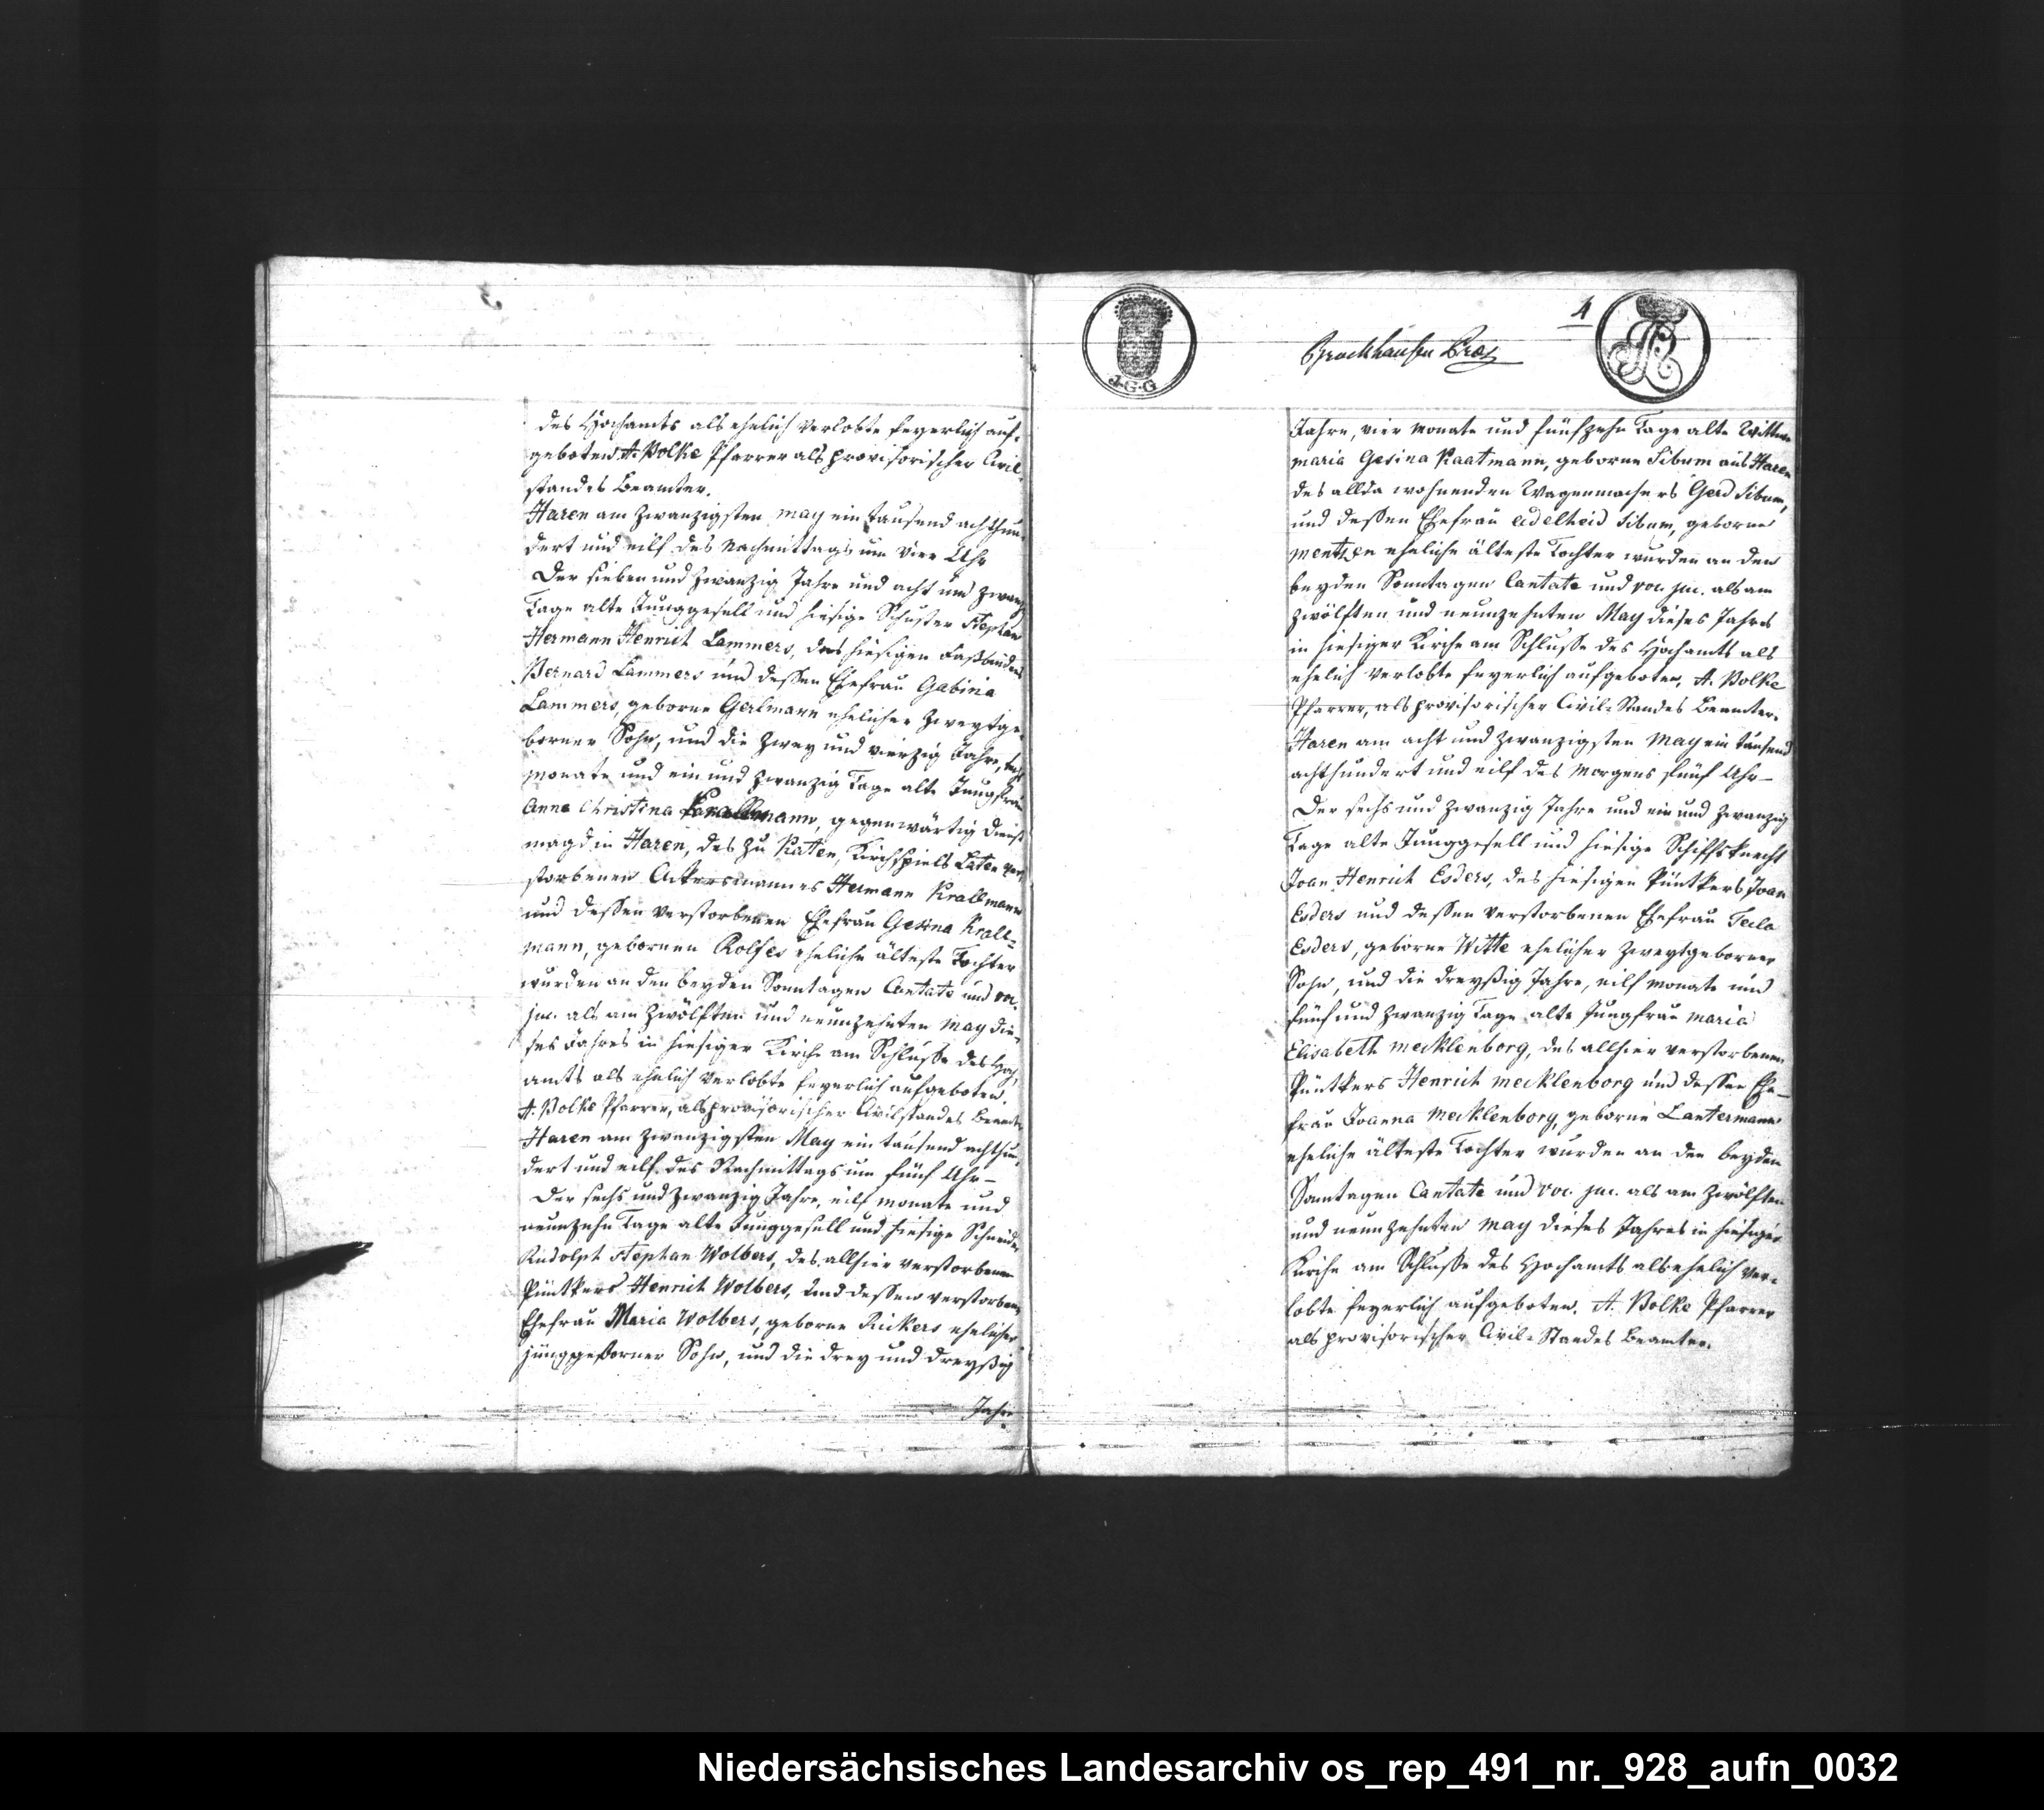 des Hochamts als ehelich verlobte feyerlich auf-
geboten. A. Bolke Pfarrer als provisorischer Civil-
standes Beamter.
Haren am zwanzigsten may ein tausend achthun-
dert und eilf des Nachmittags um vier Uhr
Der sieben und zwanzig Jahre und acht und zwanzig
Tage alte Junggesell und hiesige Schuster Stephan
Hermann Henrich Lammers, des hiesigen Faßbinders
Bernard Lammers und dessen Ehefrau Gabina
Lammers, geborne Gerlmann ehelicher zweytge-
borner Sohn, und die zwey und vierzig Jahre,
monate und ein und zwanzig Tage alte Jungfrau
Anna Christina Krallmann, gegenwärtig Dienst
magd in Haren, des zu Raten, Kirchspiels Laten ver-
storbenen Ackersmannes Hermann Krallmann
und dessen verstorbenen Ehefrau Gesina Krall-
mann, gebornen Rolfes eheliche älteste Tochter
wurden an den beyden Sonntagen Cantate und voc.
juc. als am zwölften und neunzehnten may die-
ses Jahres in hiesiger Kirche am Schlusse des Hoch-
amts als ehelich verlobte feyerlich aufgeboten.
A. Bolke Pfarrer, als provisorischer Civilstandes Beamter
Haren am zwanzigsten May ein tausend achthun-
dert und eilf des Nachmittags um fünf Uhr –
Der sechs und zwanzig Jahre, eilf monate und
neunzehn Tage alte Junggesell und hiesige Schneider
Rudolph Stephan Wolbers, des allhier verstorbenen
Püntkers Henrich Wolbers, und dessen verstorbenen
Ehefrau Maria Wolbers, geborne Rickers ehelicher
jünggeborner Sohn, und die drey und dreyßig
Jahre
4
Brockhausen
J.G.G
Jahre, vier Monate und fünfzehn Tage alte Wittwe
Maria Gesina Kaatmann, geborne Sibum aus Haren
des allda wohnenden Wagenmachers Gerd Sibum,
und dessen Ehefrau Adelheid Sibum, geborne
Mentzen eheliche älteste Tochter wurden an den
beyden Sonntagen Cantate und voc. juc. als am
zwölften und neunzehnten May dieses Jahres
in hiesiger Kirche am Schlusse des Hochamts als
ehelich verlobte feyerlich aufgeboten, A. Bolke
Pfarrer, als provisorischer Civil-Standes Beamter.
Haren am acht und zwanzigsten May ein tausend
achthundert und eilf des Morgens fünf Uhr –
Der sechs und zwanzig Jahre und ein und zwanzig
Tage alte Junggesell und hiesige Schiffsknecht
Joan Henrich Esders, des hiesigen Püntkers Joan
Esders und dessen verstorbenen Ehefrau Tecla
Esders, geborne Witte ehelicher zweytgeborner
Sohn, und die dreyßig Jahre, eilf monate und
fünf und zwanzig Tage alte Jungfrau Maria
Elisabeth Mecklenborg, des allhier verstorbenen
Püntkers Henrich Mecklenborg und dessen Ehe-
frau Joanna Mecklenborg, geborne Lantermann
eheliche älteste Tochter wurden an den beyden
Sonntagen Cantate und voc. juc. als am zwölften
und neunzehnten may dieses Jahres in hiesiger
Kirche am Schlusse des Hochamts als ehelich ver-
lobte feyerlich aufgeboten. A. Bolke Pfarrer
als provisorischer Civil-Standes Beamter.
Niedersächsisches Landesarchiv os_rep_491_nr._928_aufn_0032